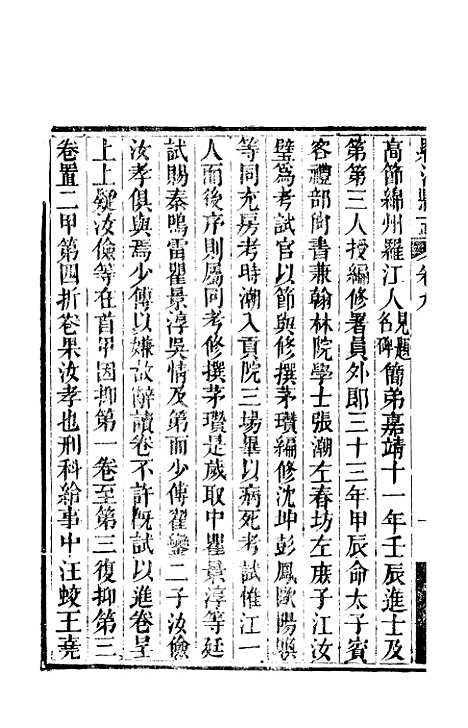 高節綿州羅江人見題名碑簡弟嘉靖十一年壬辰進士及
第第三人授編修署員外郎三十三年甲辰命太子賓
客禮部尚書兼翰林院學士張潮左春坊左庶子江汝
璧為考試官以節與修撰茅瓚編修沈坤彭鳳歐陽㬇
等同充房考時潮入貢院三場畢以病死考試惟江一
人而後序則屬同考修撰茅瓚是歲取中瞿景淳等廷
試賜秦鳴雷瞿景淳吳情及第而少傅翟鑾二子汝儉
汝孝俱與焉少傅以嫌故辭讀卷不許既試以進卷呈
上上疑汝儉等在首甲因抑第一卷至第三復抑第三
卷置二甲第四折卷果汝孝也刑科給事中汪蛟王堯